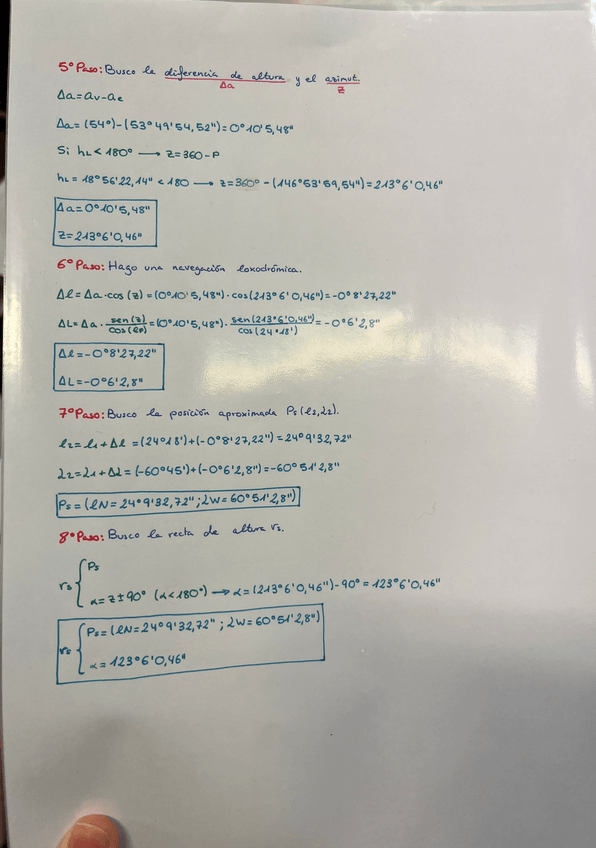 5º Paso: Busco la diferencia de altura y el azimut.
Δa Z
Δa = av - ae
Δa = (54º) - (53º 49' 54,52") = 0º 10' 5,48"
Si hL < 180º → Z = 360 - P
hL = 18º 56' 22,14" < 180 → Z = 360º - (146º 53' 59,54") = 213º 6' 0,46"
Δa = 0º 10' 5,48"
Z = 213º 6' 0,46"
6º Paso: Hago una navegación loxodrómica.
Δl = Δa · cos (z) = (0º 10' 5,48") · cos (213º 6' 0,46") = -0º 8' 27,22"
ΔL = Δa · sen(z)/cos(lp) = (0º 10' 5,48") · sen(213º 6' 0,46")/cos(24º 18') = -0º 6' 2,8"
Δl = -0º 8' 27,22"
ΔL = -0º 6' 2,8"
7º Paso: Busco la posición aproximada Ps (l2, L2).
l2 = l1 + Δl = (24º 18') + (-0º 8' 27,22") = 24º 9' 32,72"
L2 = L1 + ΔL = (-60º 45') + (-0º 6' 2,8") = -60º 51' 2,8"
Ps = (lN = 24º 9' 32,72" ; LW = 60º 51' 2,8")
8º Paso: Busco la recta de altura rs.
rs { Ps
α = Z ± 90º (α < 180º) → α = (213º 6' 0,46") - 90º = 123º 6' 0,46"
rs { Ps = (lN = 24º 9' 32,72" ; LW = 60º 51' 2,8")
α = 123º 6' 0,46"